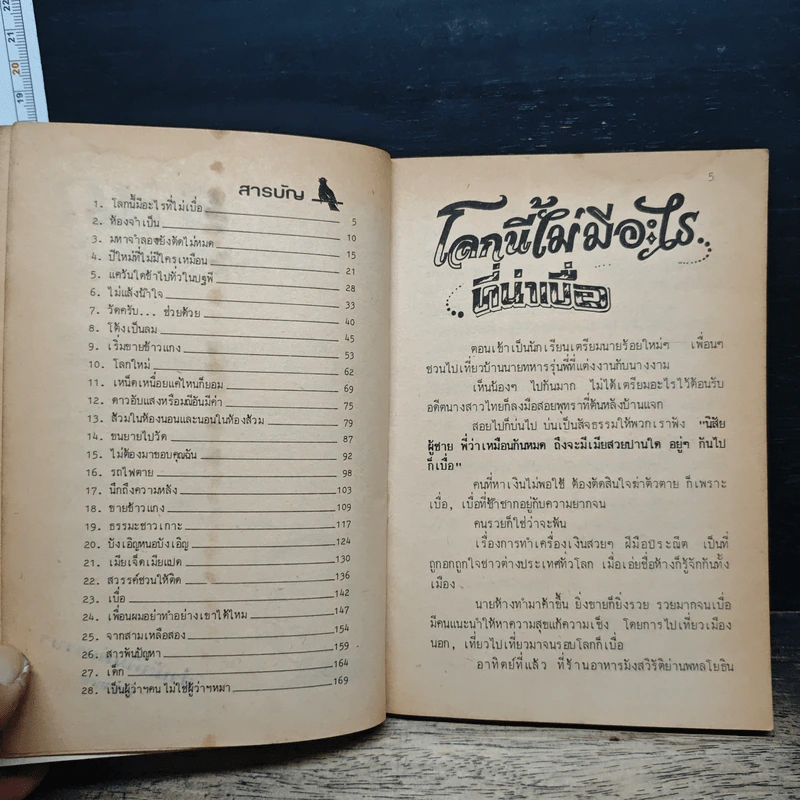 สารบัญ
1. โลกนี้มีอะไรที่ไม่เบื่อ 5
2. ห้องจำเป็น 10
3. มหาจำลองยังตัดไม่หมด 15
4. ปีใหม่ที่ไม่มีใครเหมือน 21
5. แคร้นใดช้าไปทั่วในปฐพี 28
6. ไม่แล้งน้ำใจ 33
7. วัดครับ... ช่วยด้วย 40
8. โต้งเป็นลม 45
9. เริ่มขายข้าวแกง 53
10. โลกใหม่ 62
11. เหน็ดเหนื่อยแค่ไหนก็ยอม 69
12. ดาวอับแสงหรือมณีอันมีค่า 75
13. ส้วมในห้องนอนและนอนในห้องส้วม 79
14. ขนยายไปวัด 87
15. ไม่ต้องมาขอบคุณฉัน 92
16. รถไฟตาย 98
17. นึกถึงความหลัง 103
18. ขายข้าวแกง 109
19. ธรรมะชาวเกาะ 117
20. บังเอิญหนอบังเอิญ 124
21. เมียเจ็ดเมียแปด 130
22. สวรรค์ชวนให้คิด 136
23. เบื่อ 142
24. เพื่อนผมอย่าทำอย่างเขาได้ไหม 147
25. จากสามเหลือสอง 154
26. สารพันปัญหา 159
27. เด็ก 164
28. เป็นผู้ว่าฯคน ไม่ใช่ผู้ว่าฯหมา 169
5
โลกนี้ไม่มีอะไร..
..ที่น่าเบื่อ
ตอนเช้าเป็นนักเรียนเตรียมนายร้อยใหม่ๆ เพื่อนๆ
ชวนไปเที่ยวบ้านนายทหารรุ่นพี่ที่แต่งงานกับนางงาม
เห็นน้องๆ ไปกันมาก ไม่ได้เตรียมอะไรไว้ต้อนรับ
อดีตนางสาวไทยก็ลงมือสอยพุทราที่ต้นหลังบ้านแจก
สอยไปก็บ่นไป บ่นเป็นสัจธรรมให้พวกเราฟัง "นิสัย
ผู้ชาย พี่ว่าเหมือนกันหมด ถึงจะมีเมียสวยปานใด อยู่ๆ กันไป
ก็เบื่อ"
คนที่หาเงินไม่พอใช้ ต้องตัดสินใจฆ่าตัวตาย ก็เพราะ
เบื่อ, เบื่อที่ซ้ำซากอยู่กับความยากจน
คนรวยก็ใช่ว่าจะพ้น
เรื่องการทำเครื่องเงินสวยๆ ฝีมือประณีต เป็นที่
ถูกอกถูกใจชาวต่างประเทศทั่วโลก เมื่อเอ่ยชื่อห้างก็รู้จักกันทั้ง
เมือง
นายห้างทำมาค้าขึ้น ยิ่งขายก็ยิ่งรวย รวยมากจนเบื่อ
มีคนแนะนำให้หาความสุขแก้ความเซ็ง โดยการไปเที่ยวเมือง
นอก, เที่ยวไปเที่ยวมาจนรอบโลกก็เบื่อ
อาทิตย์ที่แล้ว ที่ร้านอาหารมังสวิรัติย่านพหลโยธิน